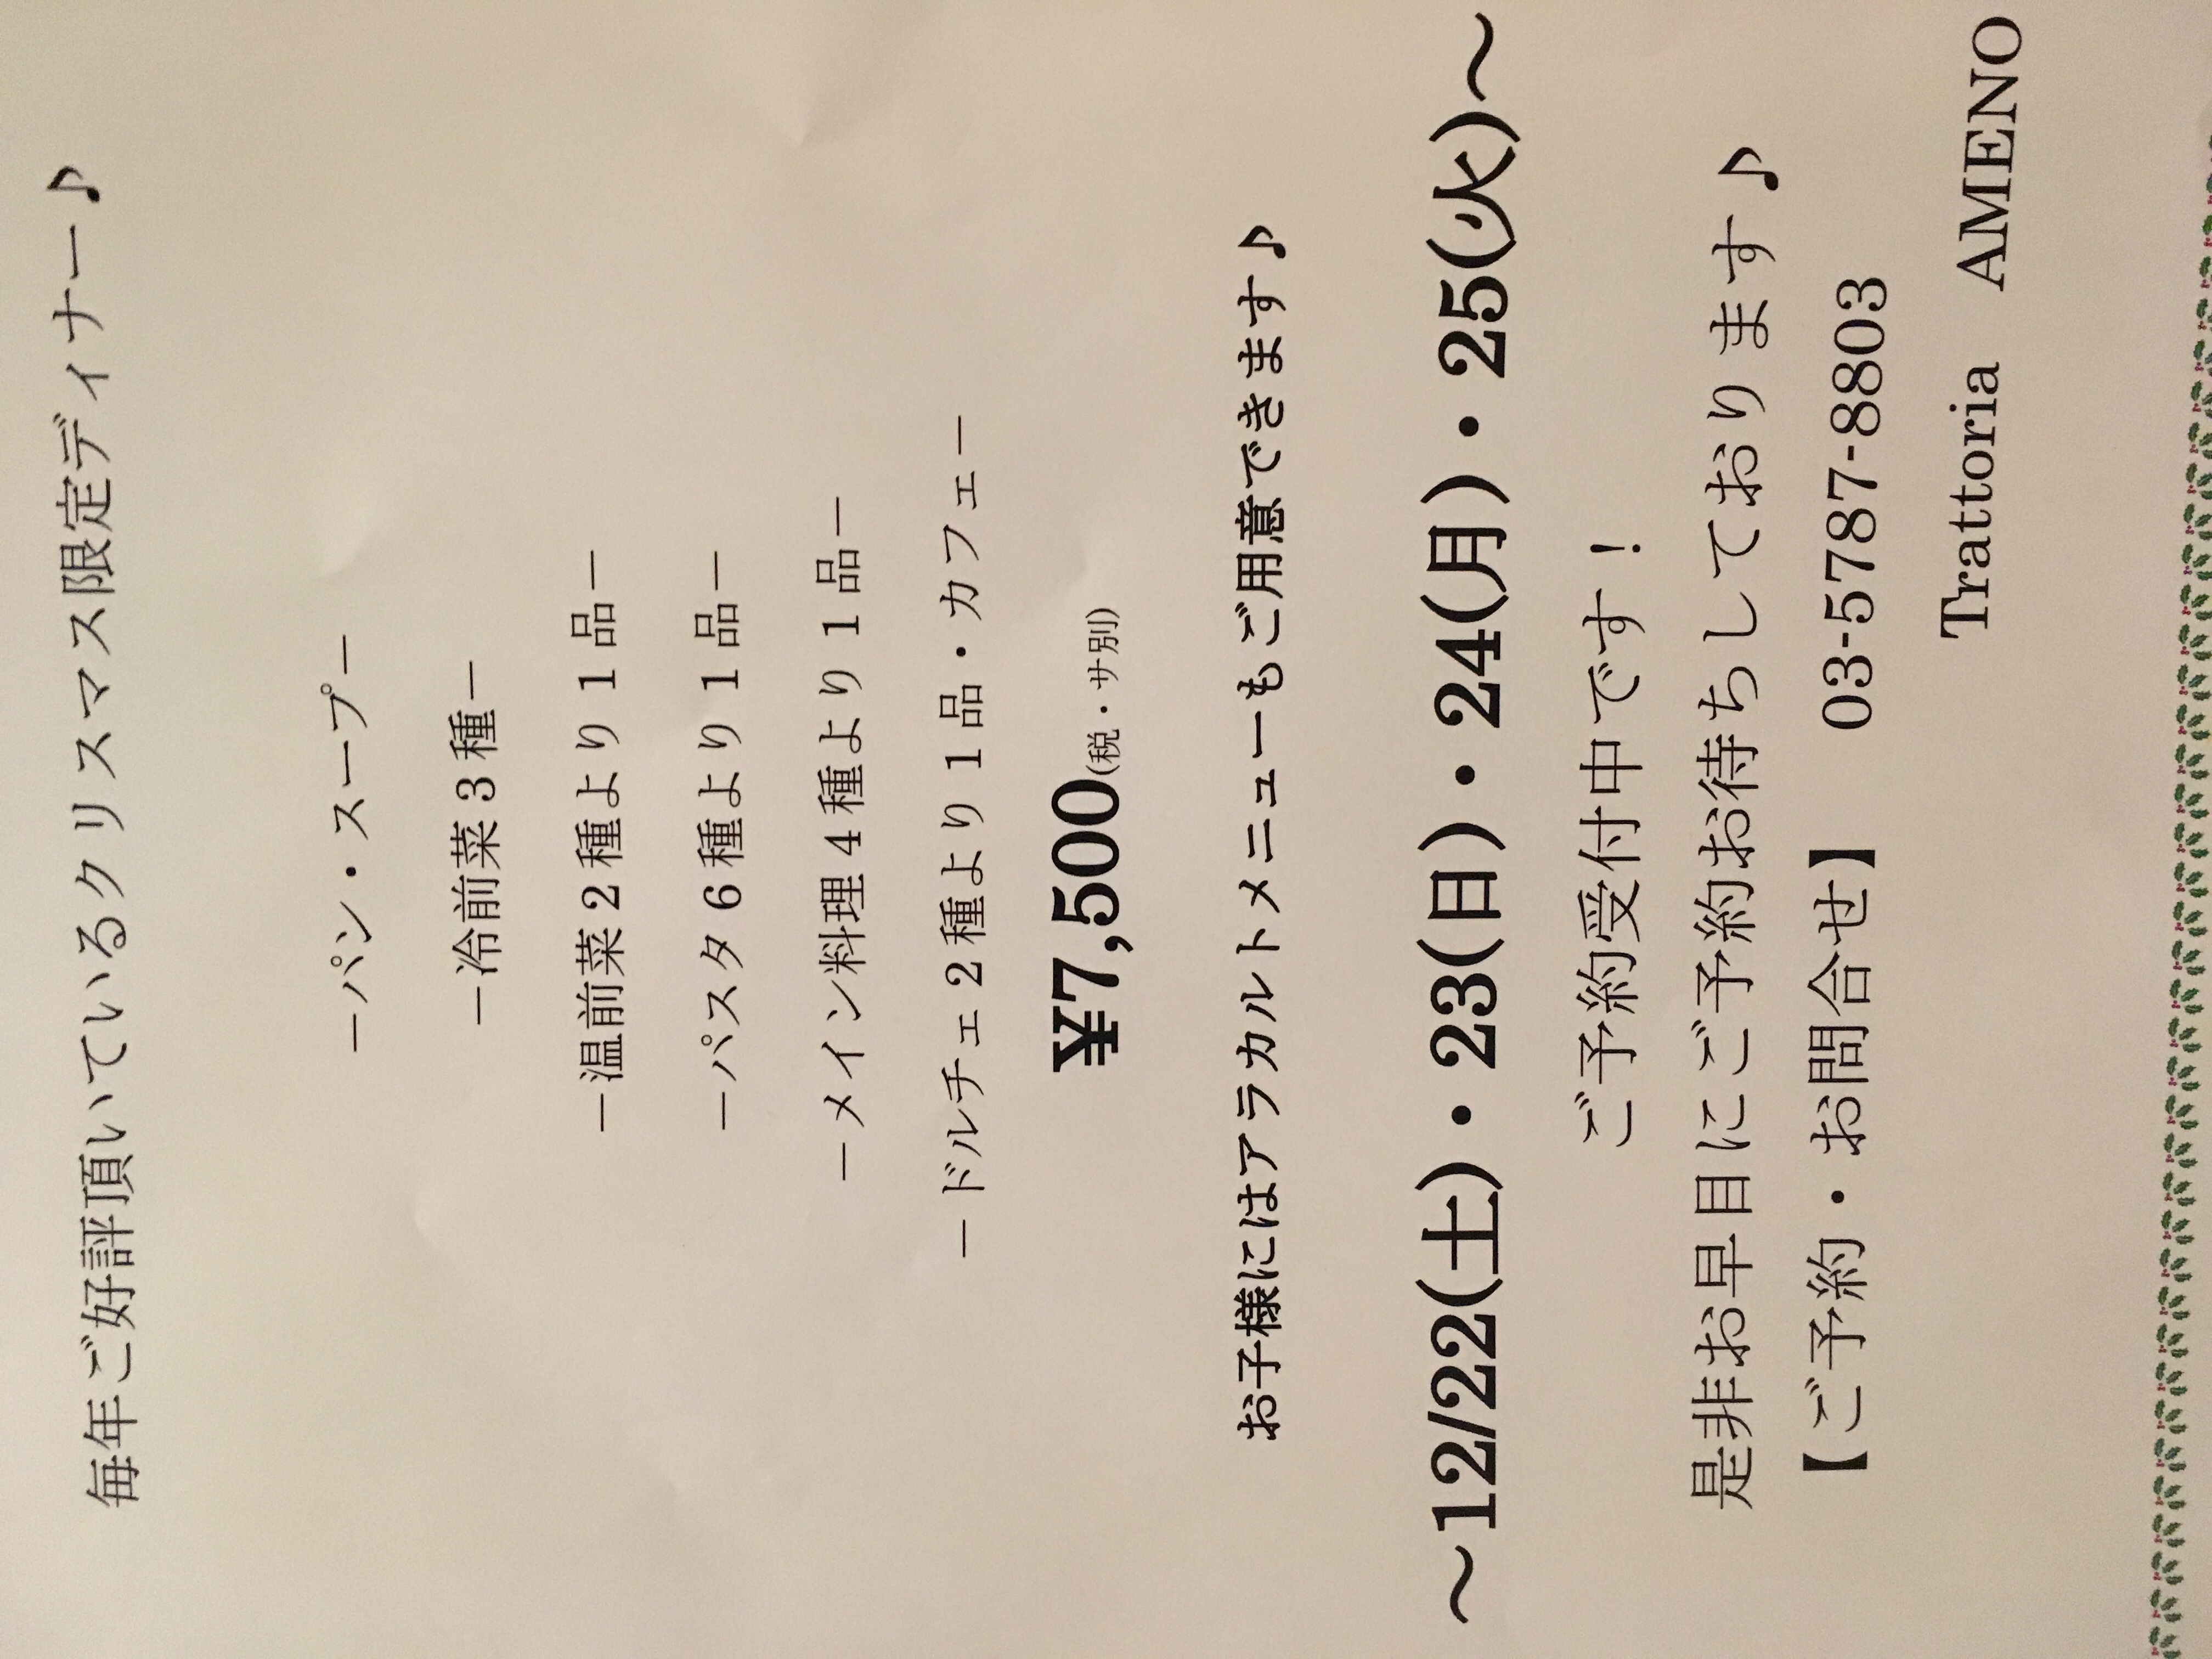 毎年ご好評頂いているクリスマス限定ディナー♪
－パン・スープ－
－冷前菜3種－
－温前菜2種より1品－
－パスタ6種より1品－
－メイン料理4種より1品－
－ドルチェ2種より1品・カフェ－
¥7,500(税・サ別)
お子様にはアラカルトメニューもご用意できます♪
～12/22(土)・23(日)・24(月)・25(火)～
ご予約受付中です！
是非お早目にご予約お待ちしております♪
【ご予約・お問合せ】 03-5787-8803
Trattoria AMENO